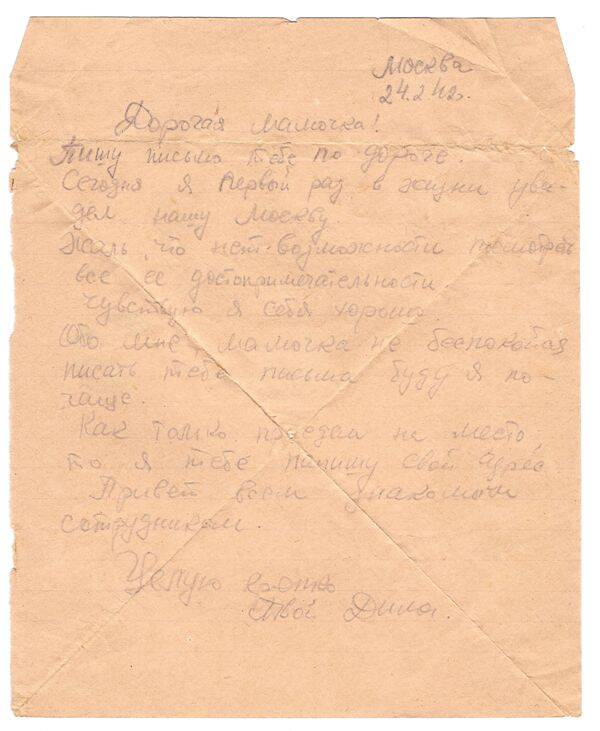 Москва
24.2.42г.
Дорогая мамочка!
Пишу письмо тебе по дороге.
Сегодня я первый раз в жизни уви-
дел нашу Москву.
Жаль, что нет возможности посмотреть
все ее достопримечательности.
Чувствую я себя хорошо.
Обо мне, мамочка не беспокойся
писать тебе письма буду я по-
чаще.
Как только приедем на место,
то я тебе напишу свой адрес
Привет всем знакомым
сотрудникам.
Целую крепко
Твой Дима.